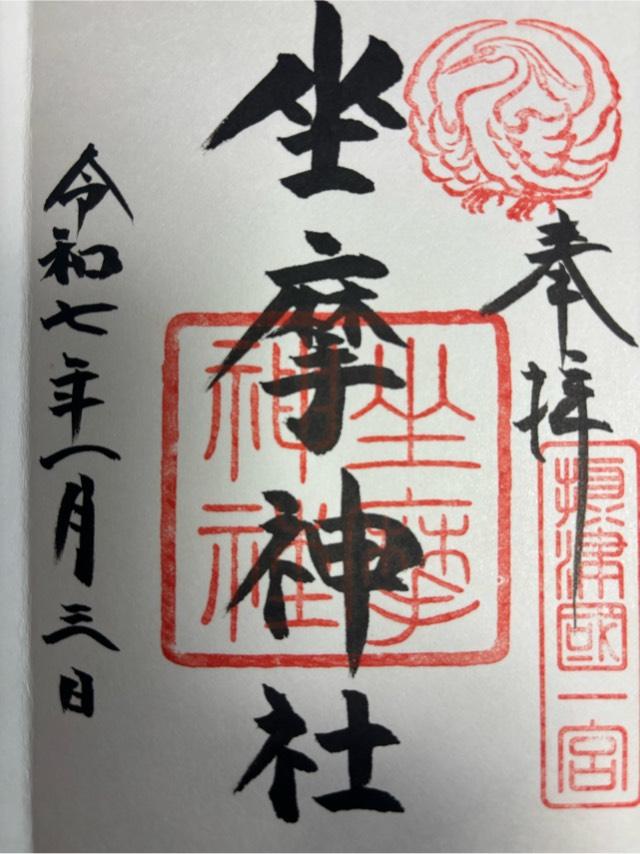 奉拝
摂津國一宮
坐摩神社
坐摩
神社
令和七年一月三日